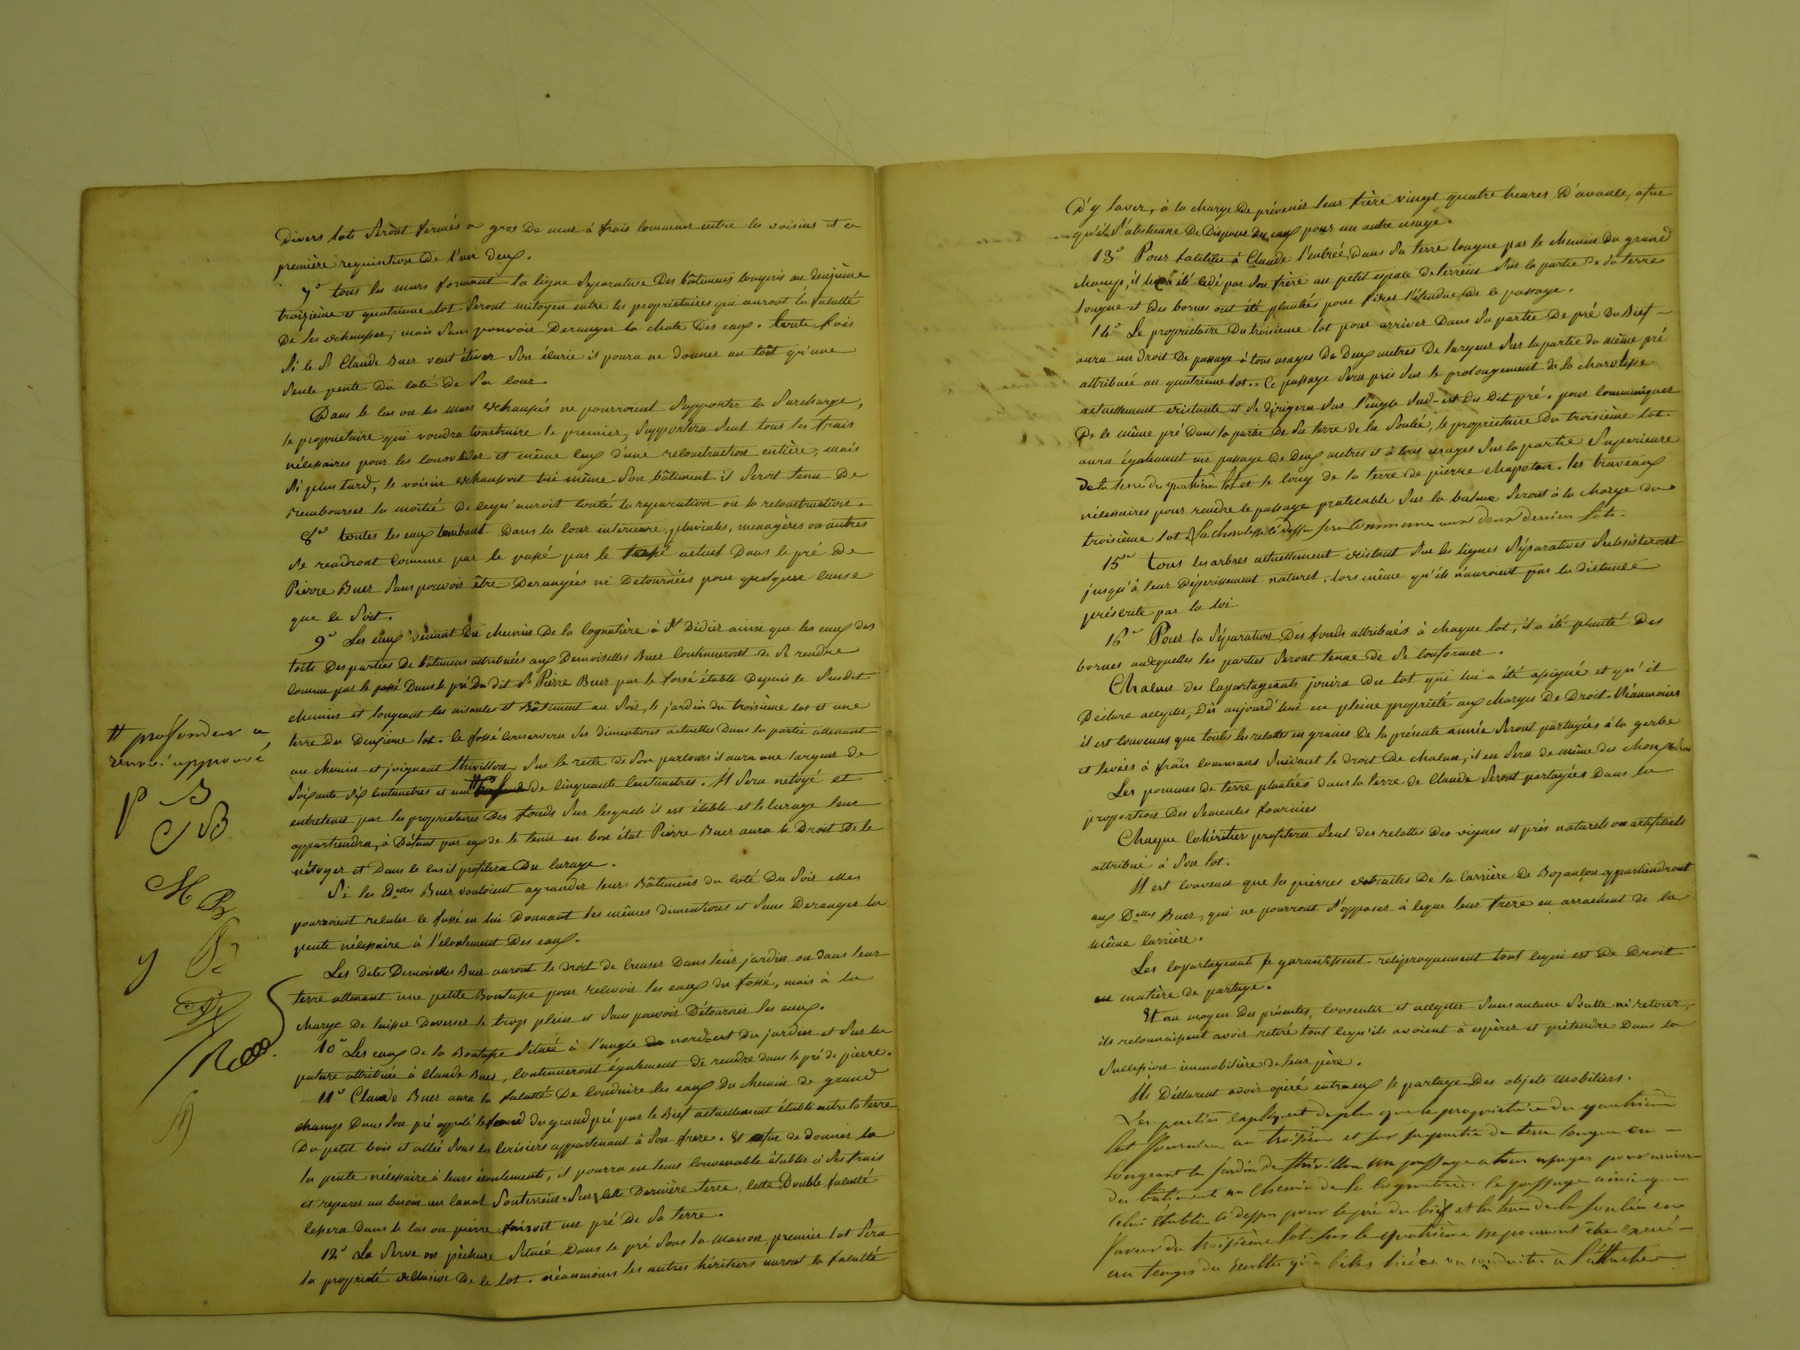 Divers lots seront fermés a gros de mur à frais communs entre les voisins et a
première requisition de l'un deux.
7° tous les murs formant la ligne séparative des bâtimens compris au deuxième
troizieme et quatrieme lot seront mitoyen entre les proprietaires qui auront la faculté
de les exhausser, mais sans pouvoir deranger la chute des eaux. toute fois
si le Sr Claude Buer veut élever son écurie il poura ne donner au toît qu'une
seule pente du coté de sa cour.
Dans le cas ou les murs exhaussés ne pourroient supporter la surcharge,
le proprietaire qui voudra construire le premier, supportera seul tous les frais
nécessaires pour les consolider et même ceux d'une reconstruction entière, mais
si plus tard, le voisin exhaussoit lui même son bâtiment il seroit tenu de
rembourser la moitié de ce qu'auroit couté la reparation ou la reconstruction.
8° toutes les eaux tombant dans la cour interieure, pluviales, menagères ou autres
se rendront comme par le passé par le fossé actuel dans le pré de
Pierre Buer sans pouvoir être derangées ni detournées pour quelque cause
que ce soit.
9° Les eaux venant du chemin de la cognatière à St Didier ainsi que les eaux des
toits des parties de bâtimens attribuées aux Demoiselles Buer continueront de se rendre
comme par le passé dans le pré du dit Sr Pierre Buer par le fossé établi depuis le susdit
chemin et longeant les aisances et bâtiment au soir, le jardin du troisième lot et une
terre du deuxième lot. le fossé conservera ses dimentions actuelles dans la partie attenant
au chemin et joignant thivillon sur le reste de son parcours il aura une largeur de
soixante six centimetres et une # de cinquante centimetres. Il sera netoyé et
entretenu par les proprietaires des fonds sur lesquels il est établi et le curage leur
appartiendra, à défaut par eux de le tenir en bon état Pierre Buer aura le droit de le
nétoyer et dans le cas il profitera du curage.
Si les Dlles Buer vouloient agrandir leurs bâtimens du coté du soir elles
pourroient reculer le fossé en lui donnant les mêmes dimentions et sans deranger la
pente nécessaire à l'écoulement des eaux.
Les dites Demoiselles Buer auront le droit de creuser dans leur jardin ou dans leur
terre attenant une petite Boutasse pour recevoir les eaux du fossé, mais à la
charge de laisser deverser le trop plein et sans pouvoir détourner les eaux.
10° Les eaux de la Boutasse située à l'angle nord-est du jardin et sur la
pature attribuée à Claude Buer, continueront également de se rendre dans le pré de pierre.
11° Claude Buer aura la faculté de conduire les eaux du chemin de grand
champs dans son pré appelé le fond du grand pré par le Bief actuellement établi entre la terre
du petit bois et allée sous les cerisiers appartenant à son frere. Et afin de donner la
la pente nécessaire à leurs écoulements, il pourra en tems convenable établir à ses frais
et reparer au besoin un canal souterrein sur cette derniere terre, cette double faculté
cessera dans le cas ou pierre fairoit un pré de sa terre.
12° La serve ou pêcherie située dans le pré sous la maison, premier lot sera
la propriété exclusive de ce lot. néanmoins les autres héritiers auront la faculté
# profondeur
renvoi approuvé
P B
C B
H B
d'y laver, à la charge de prévenir leur frère vingt quatre heures d'avance, afin
qu'il s'abstienne de disposer des eaux pour un autre usage.
13° Pour faciliter à Claude l'entrée dans sa terre longue par le chemin du grand
champs, il lui a été cedé par son frère un petit espace de terrein sur la partie de sa terre
longue et des bornes ont été plantées pour fixer l'étendue de ce passage.
14° Le proprietaire du troisieme lot pour arriver dans sa partie de pré du Bief
aura un droit de passage à tous usages de deux metres de largeur sur la partie du même pré
attribuée au quatrieme lot. Ce passage sera pris sur le prolongement de la charolesse
actuellement existante et se dirigera sur l'angle sud-est du dit pré. pour communiquer
de ce même pré dans la partie de sa terre de la Soulié, le proprietaire du troisième lot
aura également un passage de deux metres et à tous usages sur la partie superieure
de la terre du quatrieme lot et le long de la terre de pierre chapoton. les traveaux
nécessaires pour rendre ce passage praticable sur la balme seront à la charge du
troisième lot la charolesse ci dessus sera commune aux deux derniers lots.
15° Tous les arbres actuellement existant sur les lignes séparatives subsisteront
jusqu'à leur déperissement naturel, lors même qu'ils n'auroient pas la distance
préscrite par la loi
16° Pour la séparation des fonds attribués à chaque lot, il a été planté des
bornes auxquelles les parties seront tenue de se conformer.
Chacun des copartageants jouira du lot qui lui a été assigné et qu'il
déclare accepter, dès aujourd'hui en pleine propriété aux charges de droit. Néanmoins
il est convenu que toutes les recoltes en grains de la présente année seront partagées à la gerbe
et levées à frais communs suivant le droit de chacun, il en sera de même des
Les pommes de terre plantées dans la terre de Claude seront partagées dans la
proportion des semences fournies
Chaque cohéritier profitera seul des recoltes des vignes et prés naturels ou artificiels
attribué à son lot.
Il est convenu que les pierres extraites de la carrière de Bozançon appartiendront
aux Dlles Buer, qui ne pourront s'opposer à ce que leur frere en arrachent de la
même carrière.
Les copartageants se garantissent réciproquement tout ce qui est de droit
en matière de partage.
Et au moyen des présentes, consenties et acceptées sans aucune soulte ni retour,
ils reconnaissent avoir retiré tout ce qu'ils avoient à espèrer et prétendre dans la
succession immobilière de leur père.
Ils déclarent avoir opéré entre eux le partage des objets mobiliers.
Les parties expliquent de plus que le proprietaire du quatrieme
lot fournira au troisième et sur sa partie de terre longue en
longeant le jardin de thivillon un passage a tous usages pour arriver
des bâtiments au chemin de la cognatiere. ce passage ainsi que
celui établi ci dessus pour le pré du bief et la terre de la Soulié en
faveur du troisième lot sur le quatrième ne pourront être exercé
au temps des recoltes qu'a betes liées ou conduites a l'attache